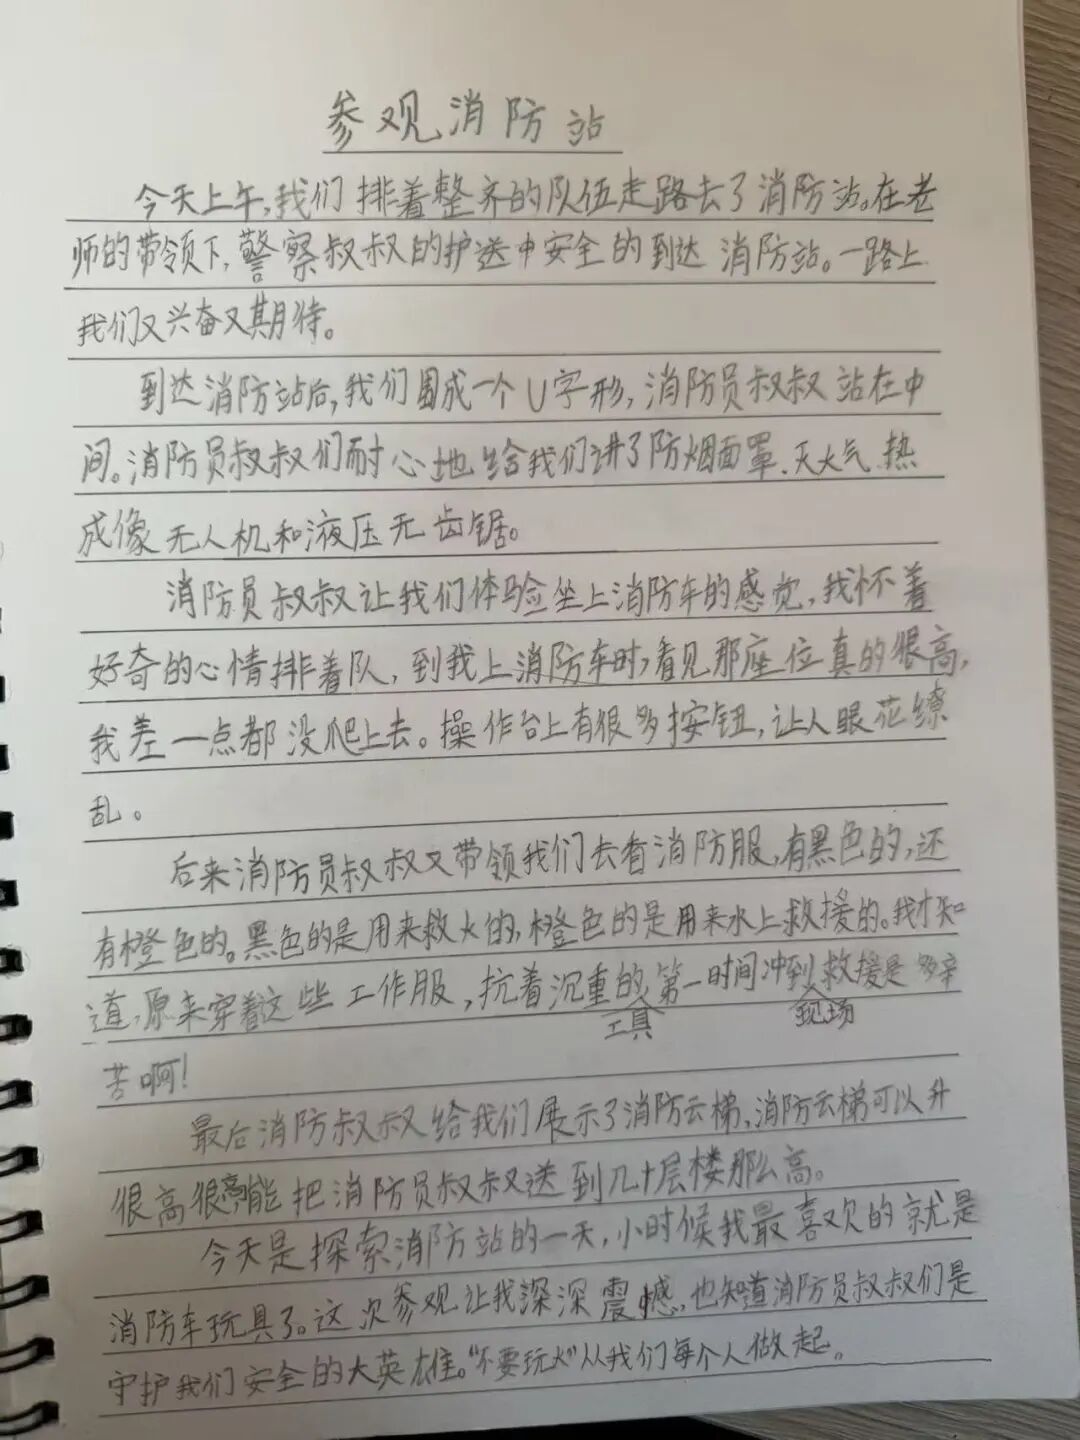 参观消防站
今天上午,我们排着整齐的队伍走路去了消防站。在老
师的带领下,警察叔叔的护送中安全的到达消防站。一路上
我们又兴奋又期待。
到达消防站后,我们围成一个U字形,消防员叔叔站在中
间。消防员叔叔们耐心地给我们讲了防烟面罩、灭火气、热
成像无人机和液压无齿锯。
消防员叔叔让我们体验坐上消防车的感觉,我怀着
好奇的心情排着队,到我上消防车时,看见那座位真的很高,
我差一点都没爬上去。操作台上有很多按钮,让人眼花缭
乱。
后来消防员叔叔又带领我们去看消防服,有黑色的,还
有橙色的。黑色的是用来救火的,橙色的是用来水上救援的。我才知
道,原来穿着这些工作服,抗着沉重的第一时间冲到救援是多辛
工具 现场
苦啊!
最后消防叔叔给我们展示了消防云梯,消防云梯可以升
很高很高,能把消防员叔叔送到几十层楼那么高。
今天是探索消防站的一天,小时候我最喜欢的就是
消防车玩具了。这次参观让我深深震撼,也知道消防员叔叔们是
守护我们安全的大英雄。“不要玩火”从我们每个人做起。